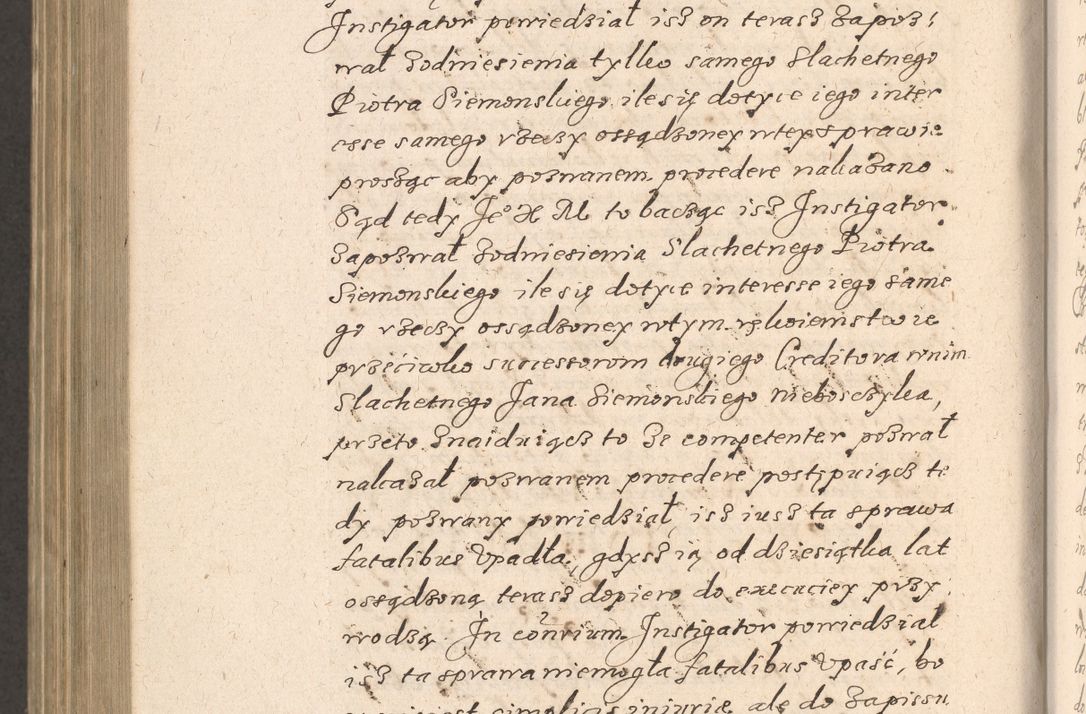 Instigator powiedział isz on terasz zapoz:
wał zodniesienia tylko samego Slachetnego
Piotra Siemonskiego ile się dotyce iego inter
esse samego rzeczy ossądzoney wtey sprawie
prosząc aby pozwanem procedere nakazano
Sąd tedy Je° K M to bacząc isz Instigator
zapozwał zodniesienia Slachetnego Piotra
Siemonskiego ile się dotyce interesse iego same
go rzeczy ossądzoney wtym rękoiemstwie
przeciwko sucessorom drugiego Creditora
Slachetnego Jana Siemonskiego nieboszczyka,
przeto znaiduiącz to że competenter pozwał
nakazał pozwanem procedere postępuiącz te
dy pozwany powiedział, isz iusz ta sprawa
fatalibus vpadła, gdysz ią od dziesiątka lat
ossądzoną terasz dopiero do execuciey przy
wodzą. In Instigator powiedział
isz ta sprawa niemogła fatalibus vpaść, bo
simplicis iniuriæ ale do zapissu